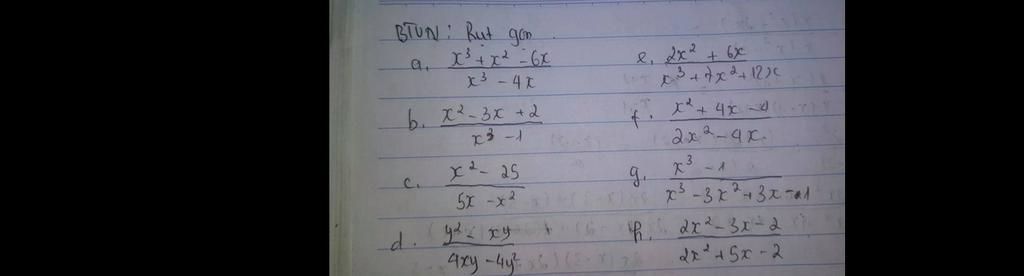 BTVN: Rút gọn.
a. (x³ + x² - 6x)/(x³ - 4x)
e. (2x² + 6x)/(x³ + 7x² + 12x)
b. (x² - 3x + 2)/(x³ - 1)
f. (x² + 4x - 4)/(2x² - 4x)
c. (x² - 25)/(5x - x²)
g. (x³ - 1)/(x³ - 3x² + 3x - 1)
d. (y² - xy)/(4xy - 4y²)
h. (2x² - 3x - 2)/(2x² + 5x - 2)